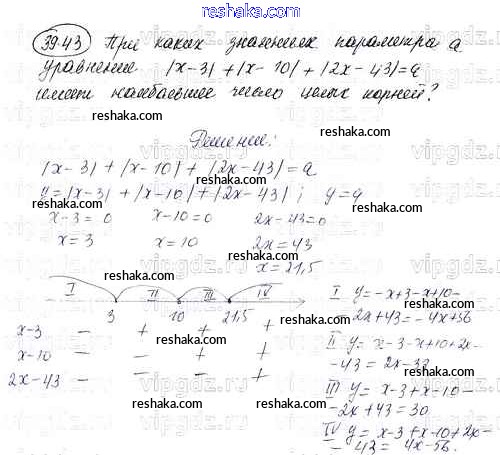 reshaka.com
39.43 При каких значениях параметра a
уравнение |x-3|+|x-10|+|2x-43|=a
имеет наибольшее число целых корней?
reshaka.com
Решение:
|x-3|+|x-10|+|2x-43|=a
y=|x-3|+|x-10|+|2x-43|; y=a
reshaka.com
x-3=0 x-10=0 2x-43=0
x=3 x=10 2x=43
x=21,5
reshaka.com
I II III IV
3 10 21,5
x-3 - + + +
x-10 - - + +
2x-43 - - - +
reshaka.com
I y=-x+3-x+10-
-2x+43=-4x+56
II y=x-3-x+10+2x-
-43=2x-33
III y=x-3+x-10-
-2x+43=30
IV y=x-3+x-10+2x-
-43=4x-56.
reshaka.com
vipgdz.com